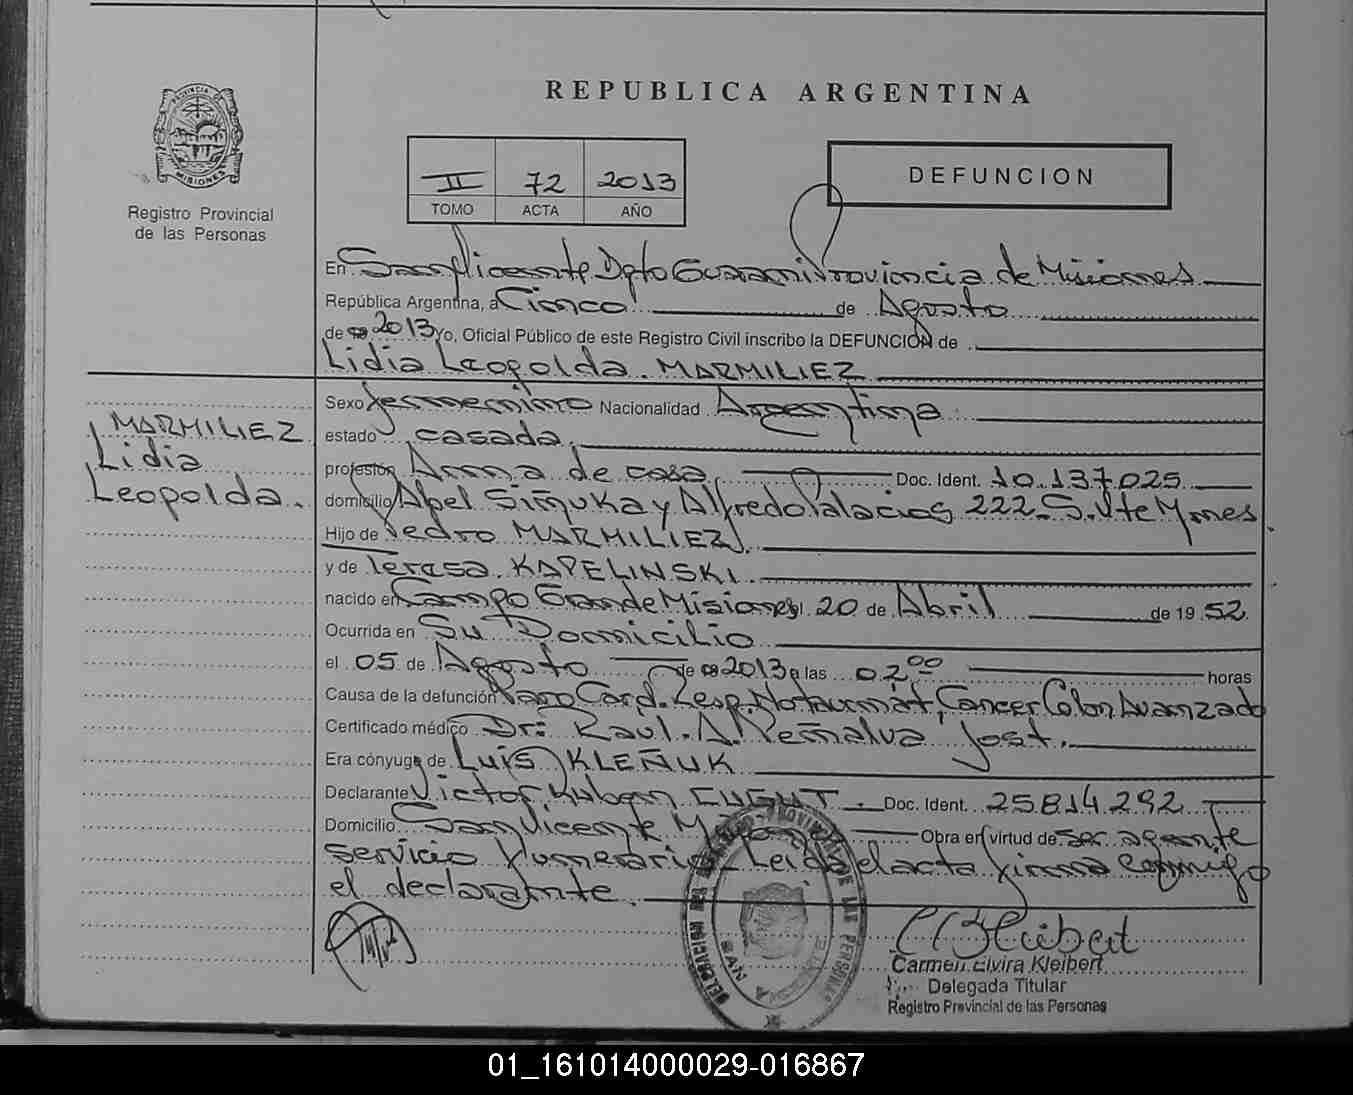 REPUBLICA ARGENTINA
PROVINCIA DE
MISIONES
Registro Provincial
de las Personas
II 72 2013
TOMO ACTA AÑO
DEFUNCION
En San Vicente Dpto Guarani Provincia de Misiones
República Argentina, a Cinco de Agosto
de 2013 Yo, Oficial Público de este Registro Civil inscribo la DEFUNCIÓN de
Lidia Leopolda. MARMILIEZ
Sexo femenino Nacionalidad Argentina
MARMILIEZ
Lidia
Leopolda.
estado casada
profesión Ama de casa Doc. Ident. 10.137.025
domicilio Abel Simuka y Alfredo Palacios 222-S. Vte Mnes.
Hijo de Pedro MARMILIEZ
y de Teresa KAPELINSKI
nacido en Campo Grande Misiones el 20 de Abril de 1952
Ocurrida en Su Domicilio
el 05 de Agosto de 2013 a las 02 00 horas
Causa de la defunción Paro Card. Resp. No traumát, Cancer Colon Avanzado
Certificado médico Dr: Raul. A. Peñalva Jost.
Era cónyuge de Luis KLEÑUK
Declarante Victor Ruben Doc. Ident. 25.814.292
Domicilio San Vicente Obra en virtud de ser agente
servicio funerario Leida el acta firma conmigo
el declarante.
DELEGACION DEL REGISTRO PROVINCIAL DE LAS PERSONAS
SAN VICENTE
Carmen Elvira Kleibert
Delegada Titular
Registro Provincial de las Personas
01_161014000029-016867